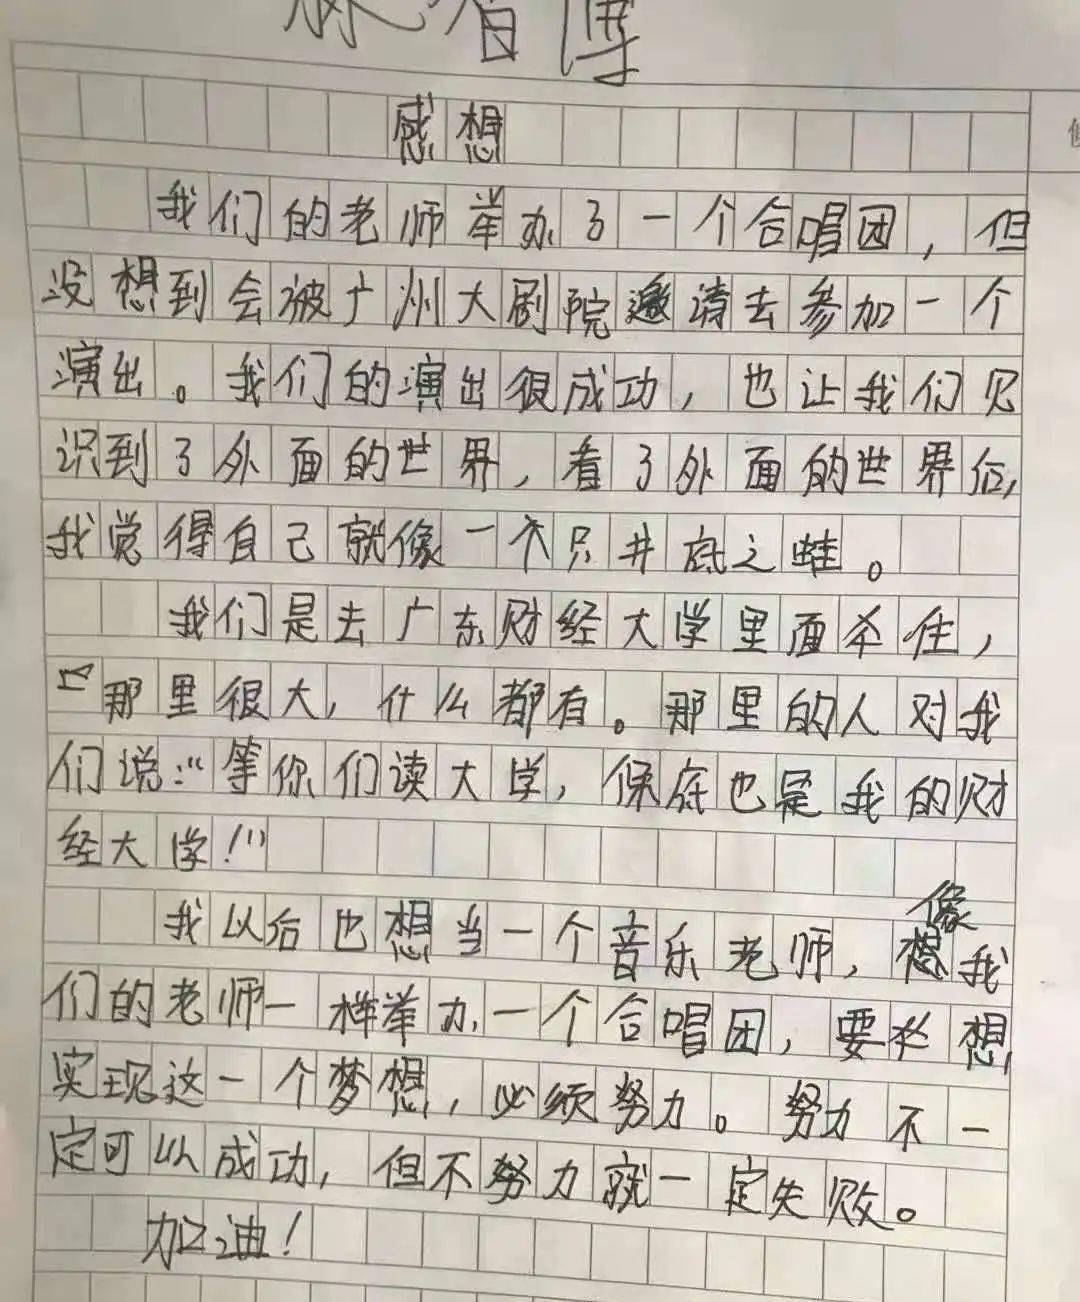 智博
感想
我们的老师举办了一个合唱团，但
没想到会被广州大剧院邀请去参加一个
演出。我们的演出很成功，也让我们见
识到了外面的世界，看了外面的世界后，
我觉得自己就像一个只井底之蛙。
我们是去广东财经大学里面住，
那里很大，什么都有。那里的人对我
们说：“等你们读大学，保底也是我的财
经大学！”
我以后也想当一个音乐老师，像我
们的老师一样举办一个合唱团，要想
实现这一个梦想，必须努力。努力不一
定可以成功，但不努力就一定失败。
加油！